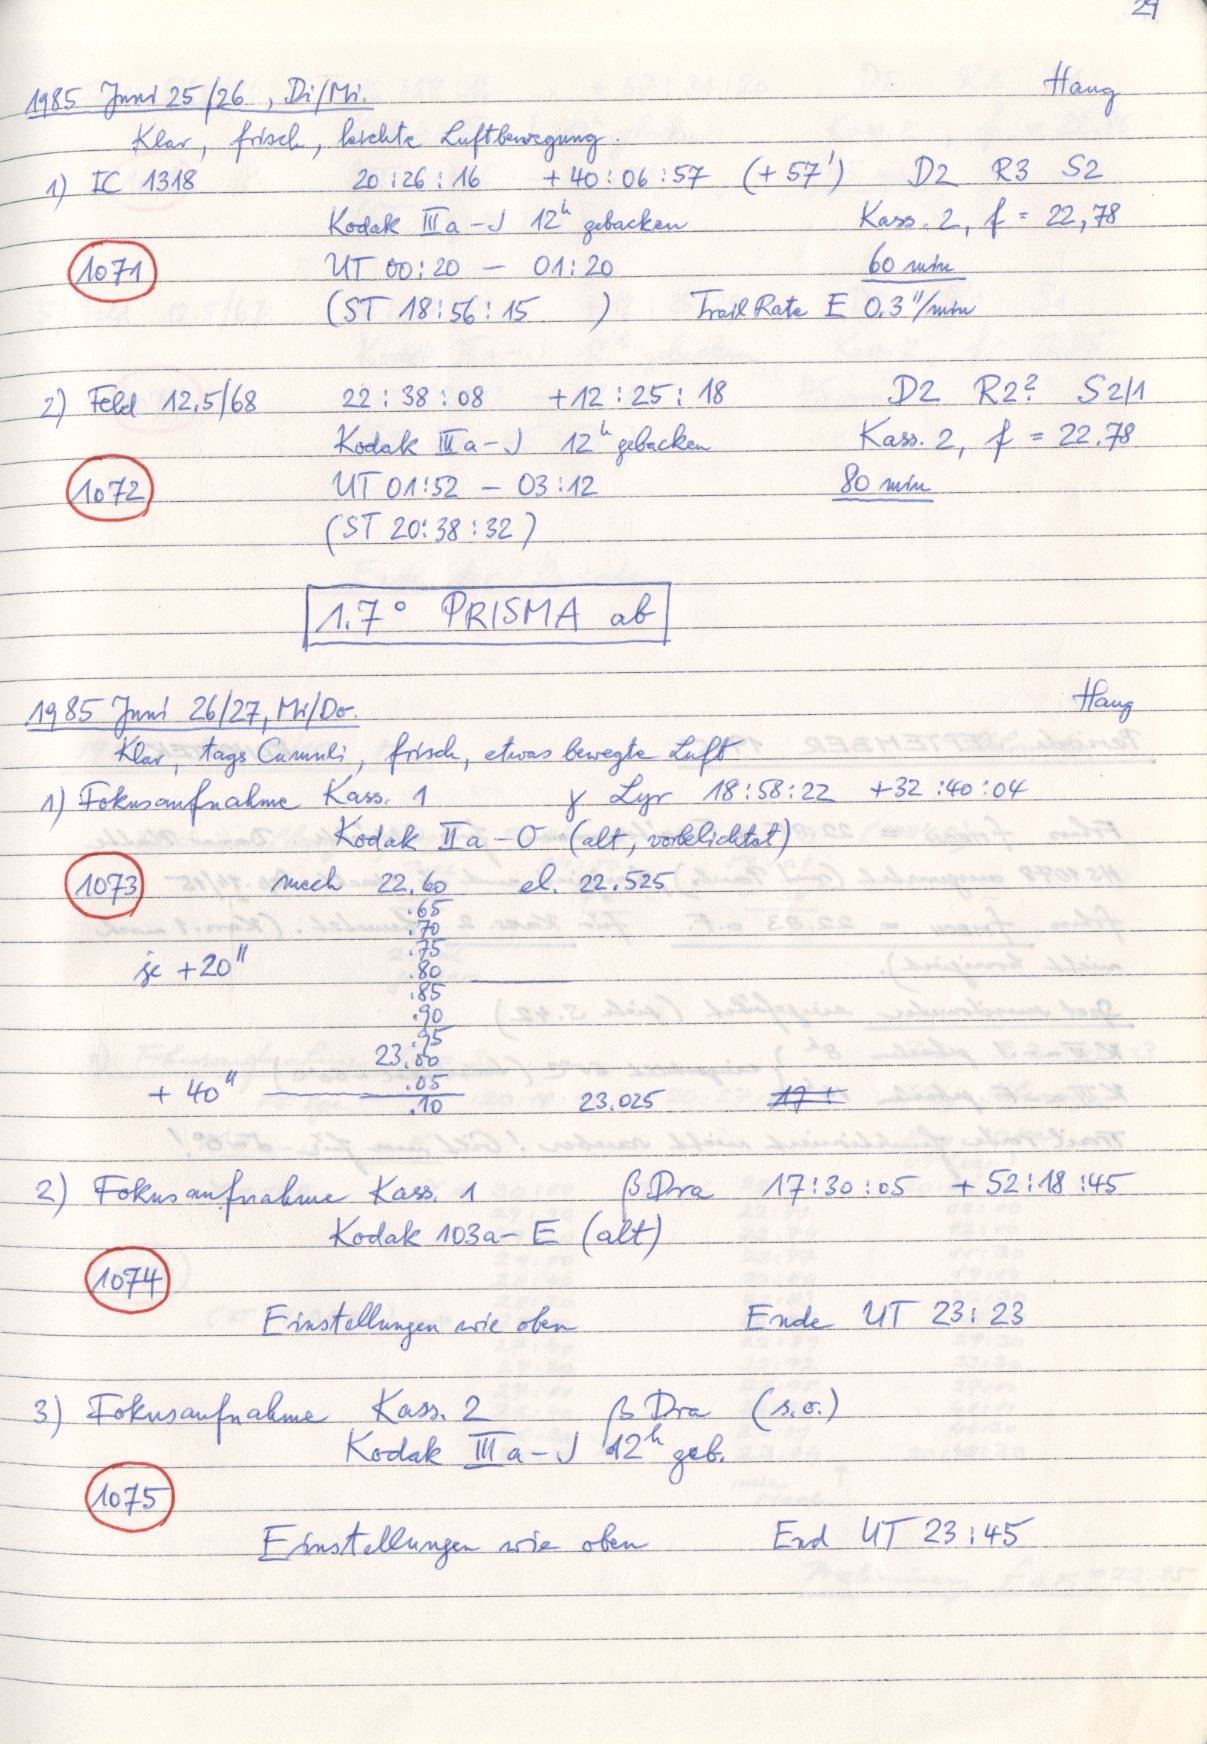 29
1985 Juni 25/26, Di/Mi. Haug
Klar, frisch, leichte Luftbewegung.
1) IC 1318 20:26:16 +40:06:57 (+57') D2 R3 S2
Kodak IIIa-J 12h gebacken Kass. 2, f = 22,78
1071 UT 00:20 – 01:20 60 min
(ST 18:56:15 ) Trail Rate E 0.3"/min
2) Feld 12.5/68 22:38:08 +12:25:18 D2 R2? S2/1
Kodak IIIa-J 12h gebacken Kass. 2, f = 22.78
1072 UT 01:52 – 03:12 80 min
(ST 20:38:32)
1.7° PRISMA ab
1985 Juni 26/27, Mi/Do. Haug
Klar, tags Cumuli, frisch, etwas bewegte Luft
1) Fokusaufnahme Kass. 1 γ Lyr 18:58:22 +32:40:04
Kodak IIa-O (alt, vorbelichtet)
1073 mech 22.60 el. 22.525
.65
.70
.75
je +20" .80
.85
.90
.95
23.00
+ 40" .05
.10 23.025 17:
2) Fokusaufnahme Kass. 1 β Dra 17:30:05 +52:18:45
Kodak 103a-E (alt)
1074
Einstellungen wie oben Ende UT 23:23
3) Fokusaufnahme Kass. 2 β Dra (s.o.)
Kodak IIIa-J 12h geb.
1075
Einstellungen wie oben End UT 23:45